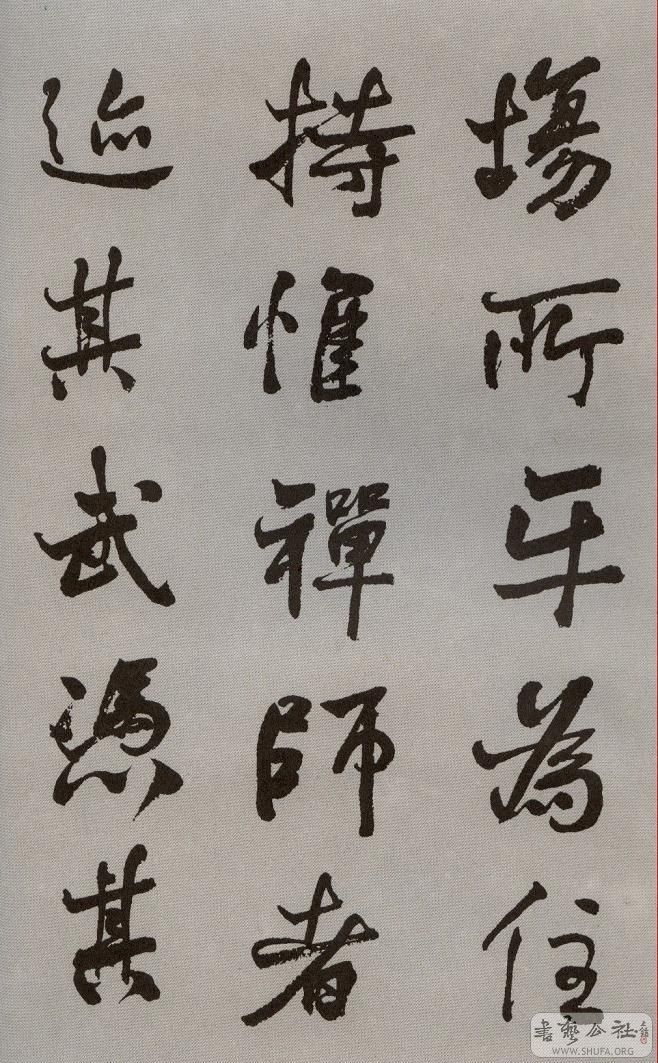 塲所為住
持惟禪師者
迹其武憑其
書藝公社
WWW.SHUFA.ORG